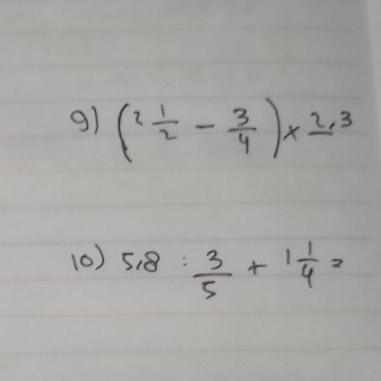 9) (2 1/2 - 3/4) × 2,3
10) 5,8 : 3/5 + 1 1/4 =